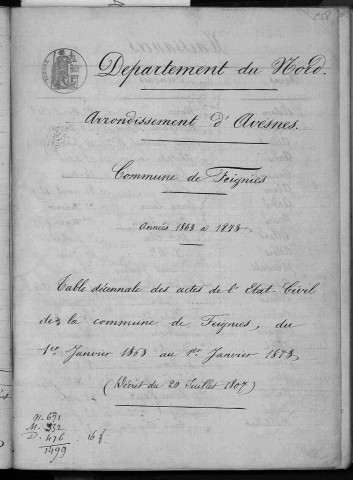 Département du Nord.
Arrondissement d'Avesnes.
Commune de Feignies
Années 1863 à 1873,
Table décennale des actes de l'Etat-Civil
de la commune de Feignies, du
1er Janvier 1863 au 1er Janvier 1873,
(Décret du 20 Juillet 1807)
N. 691
M. 332
D. 476
1499
16 f